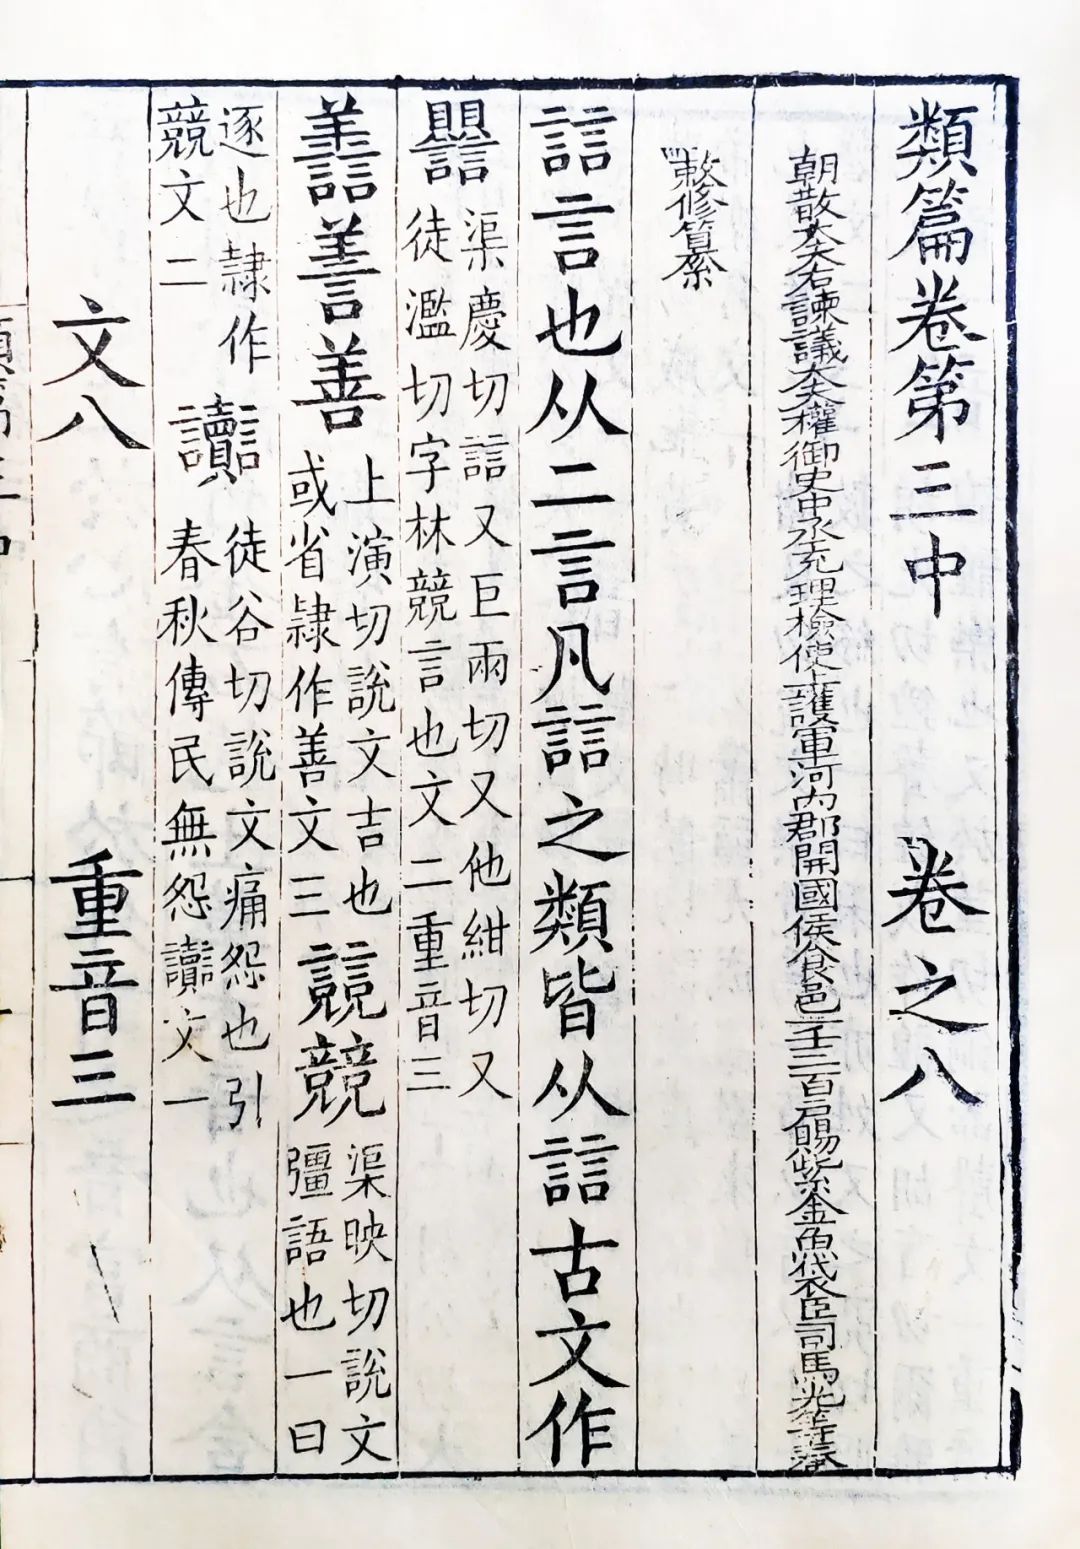 類篇卷第三中 卷之八
朝散大夫右諫議大夫權御史中丞充理檢使上護軍河內郡開國侯食邑一千三百戶賜紫金魚袋臣司馬光等奉
敕修纂
誩言也从二言凡誩之類皆从誩古文作
渠慶切誩又巨兩切又他紺切又
徒濫切字林競言也文二重音三
譱善
上演切說文吉也
或省隸作善文三
競
渠映切說文
彊語也一曰
逐也隸作
競文二
讟
徒谷切說文痛怨也引
春秋傳民無怨讟文一
文八 重音三